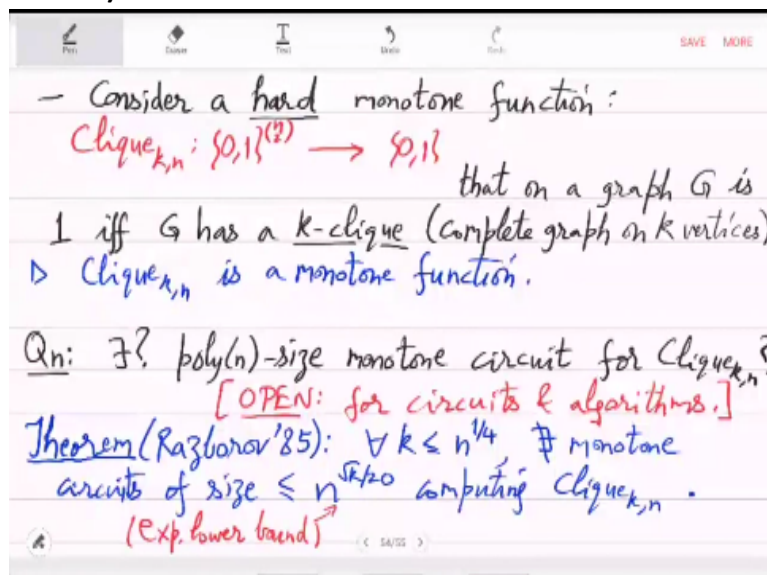 Pen Eraser Text Undo Redo SAVE MORE
- Consider a hard monotone function:
Clique_{k,n}: {0,1}^{(n 2)} → {0,1}
that on a graph G is
1 iff G has a k-clique (complete graph on k vertices)
▷ Clique_{k,n} is a monotone function.
Qn: ∃? poly(n)-size monotone circuit for Clique_{k,n}?
[OPEN: for circuits & algorithms.]
Theorem (Razborov'85): ∀ k ≤ n^{1/4}, ∄ monotone
circuits of size ≤ n^{√k/20} computing Clique_{k,n}.
(Exp. lower bound)
< 54/55 >